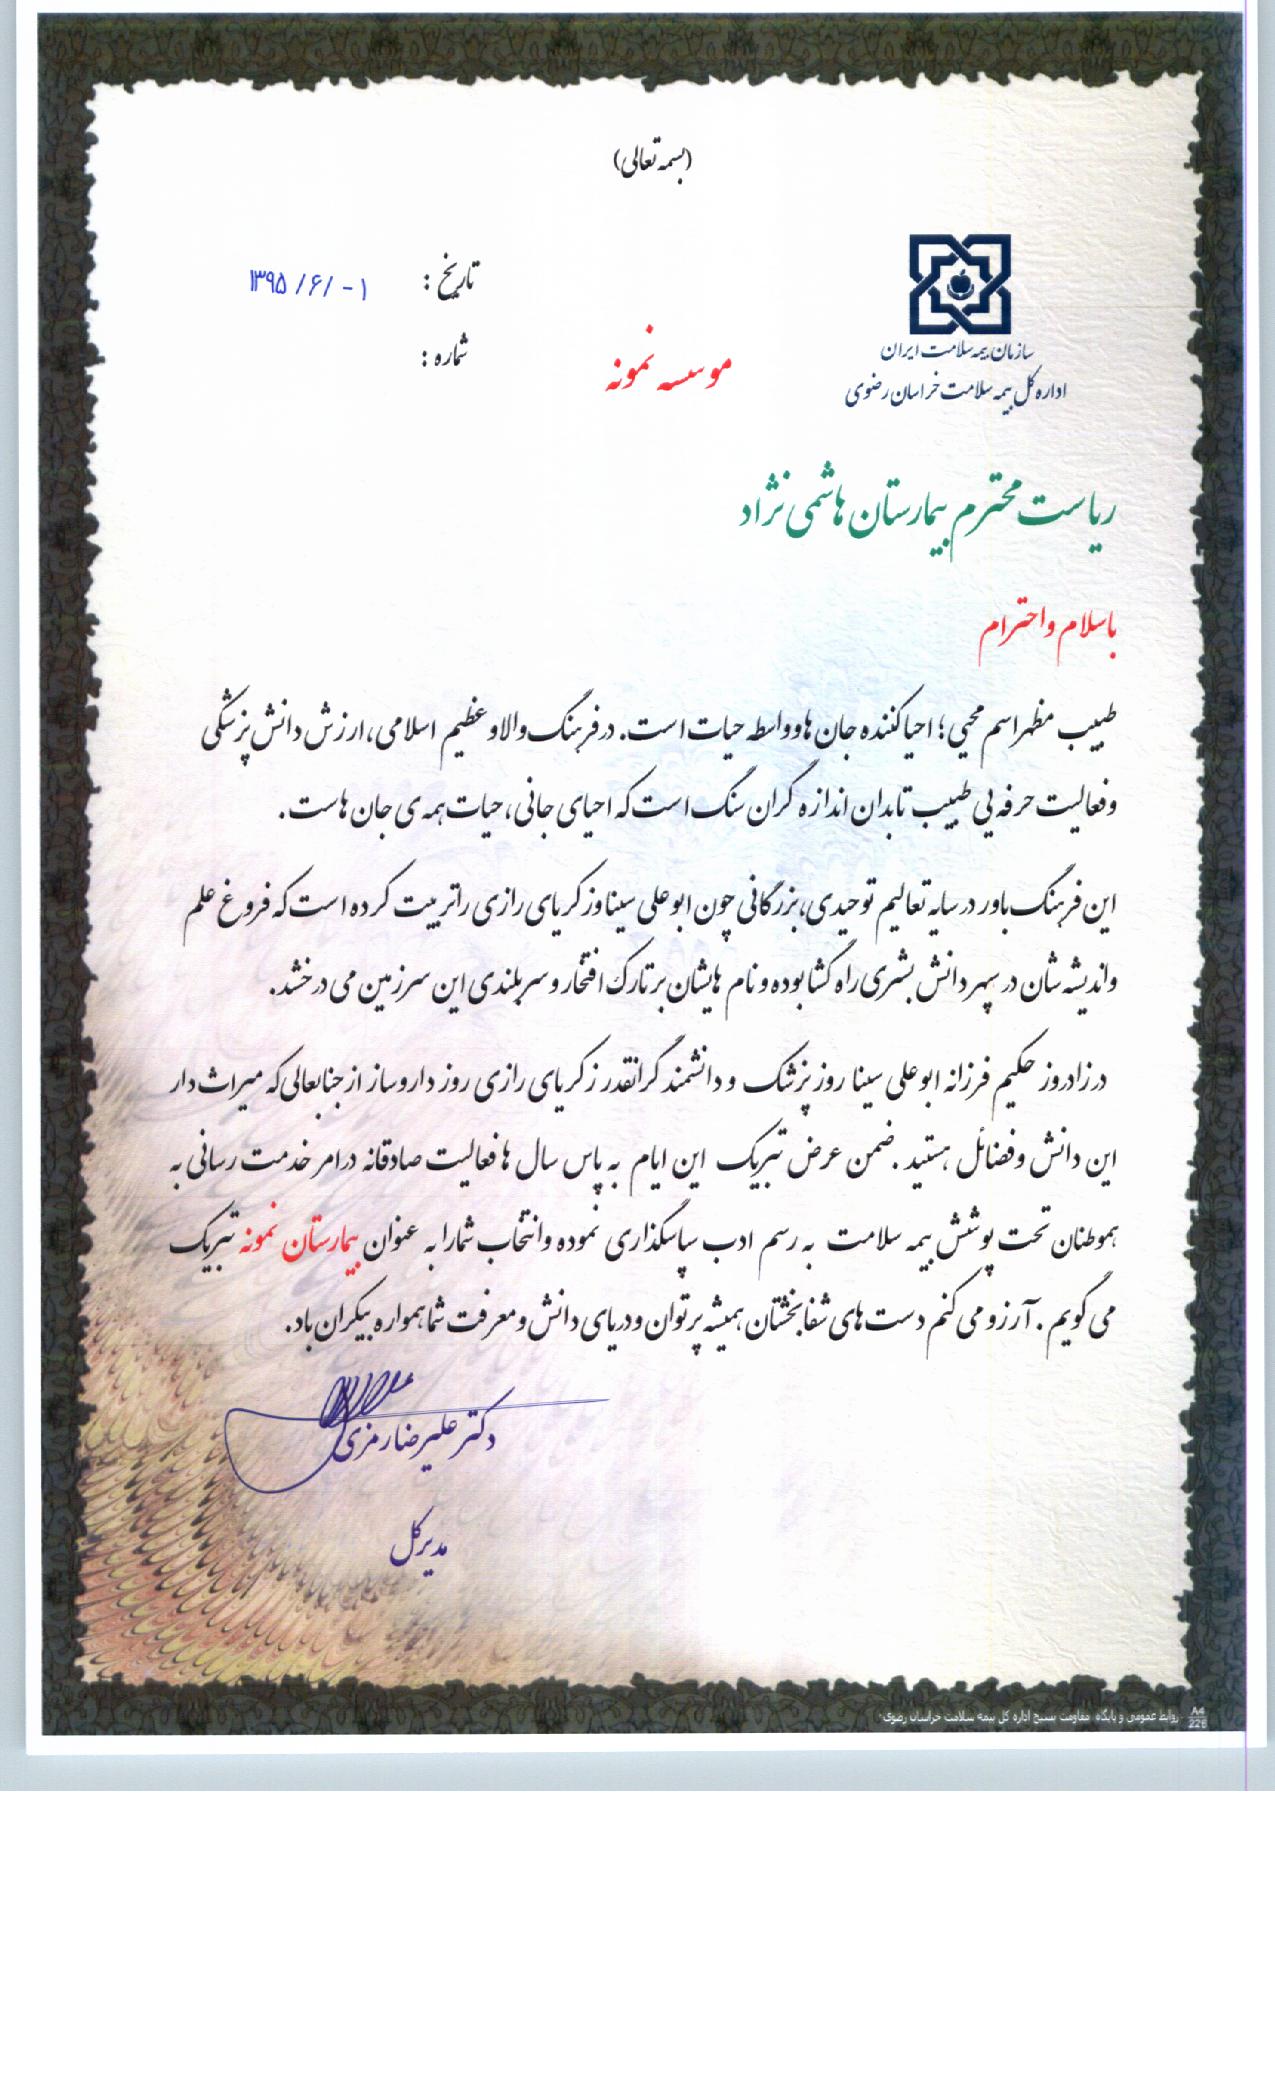 (بسمه تعالی)
سازمان بیمه سلامت ایران
اداره کل بیمه سلامت خراسان رضوی
تاریخ : ۱۳۹۵ /۶/ -۱
شماره :
موسسه نمونه
ریاست محترم بیمارستان هاشمی نژاد
باسلام واحترام
طبیب مظهر اسم محیی؛ احیا کننده جان ها و واسطه حیات است. در فرهنگ والا و عظیم اسلامی، ارزش دانش پزشکی
و فعالیت حرفه یی طبیب تا بدان اندازه گران سنگ است که احیای جانی، حیات همه ی جان هاست.
این فرهنگ باور در سایه تعالیم توحیدی، بزرگانی چون ابوعلی سینا و زکریای رازی را تربیت کرده است که فروغ علم
واندیشه شان در سپهر دانش بشری راه گشا بوده و نام هایشان بر تارک افتخار و سربلندی این سرزمین می درخشد.
در زادروز حکیم فرزانه ابوعلی سینا روز پزشک و دانشمند گرانقدر زکریای رازی روز داروساز از جنابعالی که میراث دار
این دانش و فضائل هستید . ضمن عرض تبریک این ایام به پاس سال ها فعالیت صادقانه در امر خدمت رسانی به
هموطنان تحت پوشش بیمه سلامت به رسم ادب سپاسگذاری نموده و انتخاب شما را به عنوان بیمارستان نمونه تبریک
می گویم . آرزو می کنم دست های شفابخشتان همیشه پرتوان و دریای دانش و معرفت شما همواره بیکران باد.
دکتر علیرضا رمزی
مدیر کل
روابط عمومی و پایگاه مقاومت بسیج اداره کل بیمه سلامت خراسان رضوی
A4
226